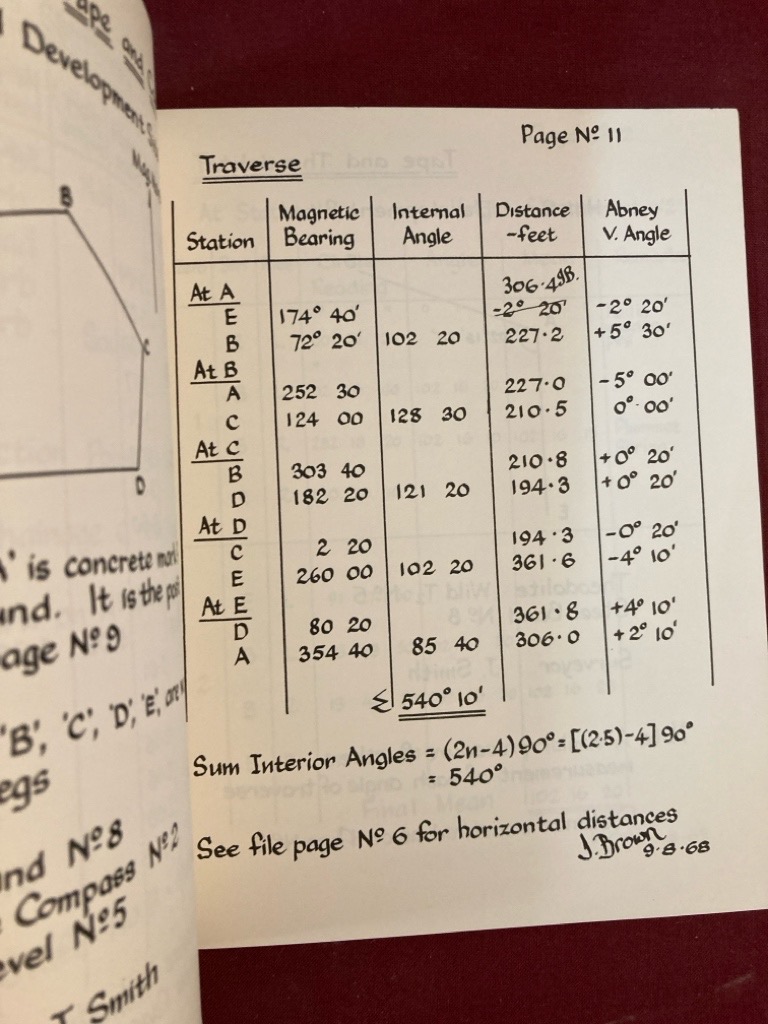 ape and
Development
B
C
D
A' is concrete
und. It is the
age Nº 9
'B', 'C', 'D', 'E', are
egs
and Nº 8
Compass Nº 2
evel Nº 5
T Smith
Page Nº 11
Traverse
Station Magnetic Bearing Internal Angle Distance -feet Abney V. Angle
At A 306·4 JB.
E 174° 40' -2° 20' -2° 20'
B 72° 20' 102 20 227·2 +5° 30'
At B
A 252 30 227·0 -5° 00'
C 124 00 128 30 210·5 0° 00'
At C
B 303 40 210·8 +0° 20'
D 182 20 121 20 194·3 +0° 20'
At D
C 2 20 194·3 -0° 20'
E 260 00 102 20 361·6 -4° 10'
At E
D 80 20 361·8 +4° 10'
A 354 40 85 40 306·0 +2° 10'
Σ 540° 10'
Sum Interior Angles = (2n-4) 90° = [(2·5)-4] 90°
= 540°
See file page Nº 6 for horizontal distances
J. Brown
9·8·68